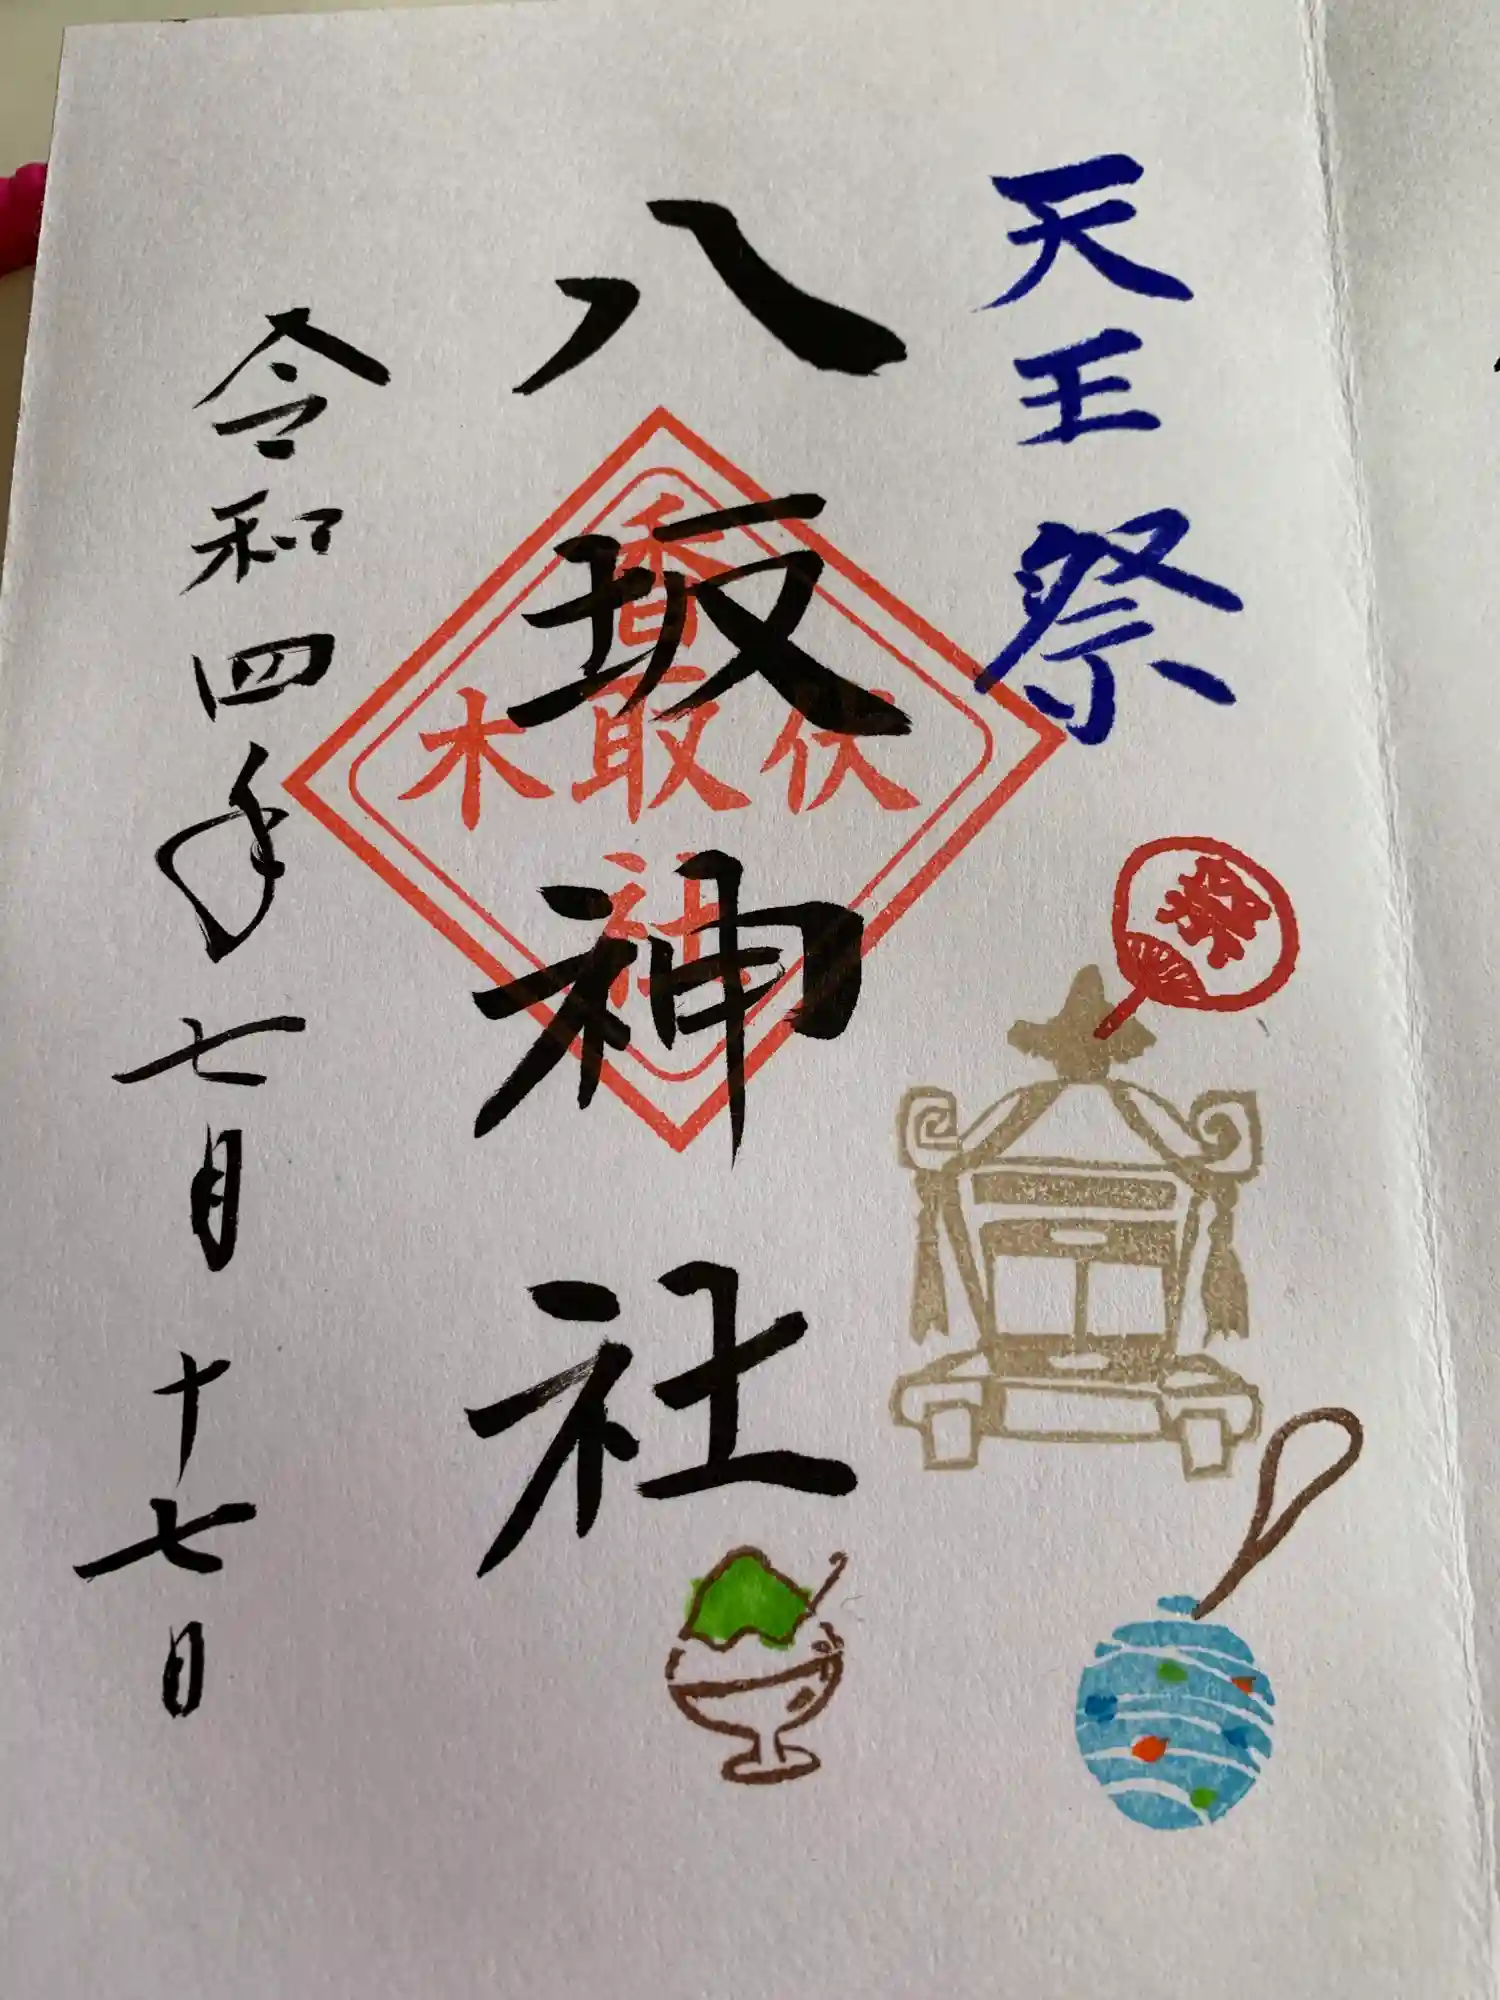 天王祭
祭
八坂神社
伏木香取社
令和四年七月十七日